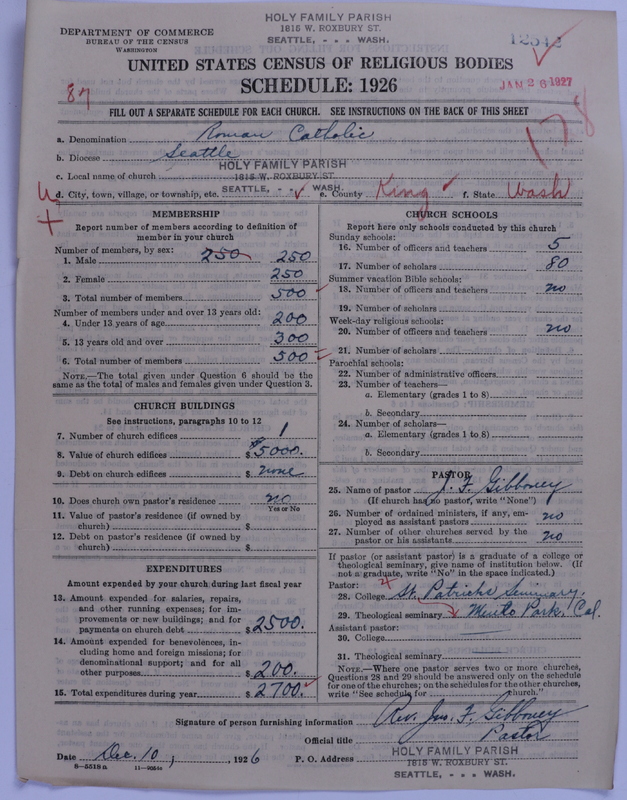 HOLY FAMILY PARISH
1815 W. ROXBURY ST.
SEATTLE, - - - WASH.
DEPARTMENT OF COMMERCE
BUREAU OF THE CENSUS
WASHINGTON
12542
UNITED STATES CENSUS OF RELIGIOUS BODIES
SCHEDULE: 1926
JAN 26 1927
87
178
FILL OUT A SEPARATE SCHEDULE FOR EACH CHURCH. SEE INSTRUCTIONS ON THE BACK OF THIS SHEET
a. Denomination Roman Catholic
b. Diocese Seattle
c. Local name of church HOLY FAMILY PARISH
1815 W. ROXBURY ST.
SEATTLE, - - - WASH.
d. City, town, village, or township, etc. e. County King f. State Wash
MEMBERSHIP
Report number of members according to definition of member in your church
Number of members, by sex:
1. Male 250 250
2. Female 250
3. Total number of members 500
Number of members under and over 13 years old:
4. Under 13 years of age 200
5. 13 years old and over 300
6. Total number of members 500
NOTE.—The total given under Question 6 should be the same as the total of males and females given under Question 3.
CHURCH BUILDINGS
See instructions, paragraphs 10 to 12
7. Number of church edifices 1
8. Value of church edifices $ 5000.
9. Debt on church edifices $ none
10. Does church own pastor's residence no
Yes or No
11. Value of pastor's residence (if owned by church) $
12. Debt on pastor's residence (if owned by church) $
EXPENDITURES
Amount expended by your church during last fiscal year
13. Amount expended for salaries, repairs, and other running expenses; for improvements or new buildings; and for payments on church debt $ 2500.
14. Amount expended for benevolences, including home and foreign missions; for denominational support; and for all other purposes $ 200.
15. Total expenditures during year $ 2700.
CHURCH SCHOOLS
Report here only schools conducted by this church
Sunday schools:
16. Number of officers and teachers 5
17. Number of scholars 80
Summer vacation Bible schools:
18. Number of officers and teachers no
19. Number of scholars
Week-day religious schools:
20. Number of officers and teachers no
21. Number of scholars
Parochial schools:
22. Number of administrative officers
23. Number of teachers—
a. Elementary (grades 1 to 8)
b. Secondary
24. Number of scholars—
a. Elementary (grades 1 to 8)
b. Secondary
PASTOR
25. Name of pastor J. F. Gibboney
(If church has no pastor, write "None")
26. Number of ordained ministers, if any, employed as assistant pastors no
27. Number of other churches served by the pastor or his assistants no
If pastor (or assistant pastor) is a graduate of a college or theological seminary, give name of institution below. (If not a graduate, write "No" in the space indicated.)
Pastor:
28. College St. Patricks Seminary,
29. Theological seminary Menlo Park, Cal.
Assistant pastor:
30. College
31. Theological seminary
NOTE.—Where one pastor serves two or more churches, Questions 28 and 29 should be answered only on the schedule for one of the churches; on the schedules for the other churches, write "See schedule for church."
Signature of person furnishing information Rev. Jas. F. Gibboney
Official title Pastor
Date Dec. 10, 1926 P. O. Address HOLY FAMILY PARISH
1815 W. ROXBURY ST.
SEATTLE, - - - WASH.